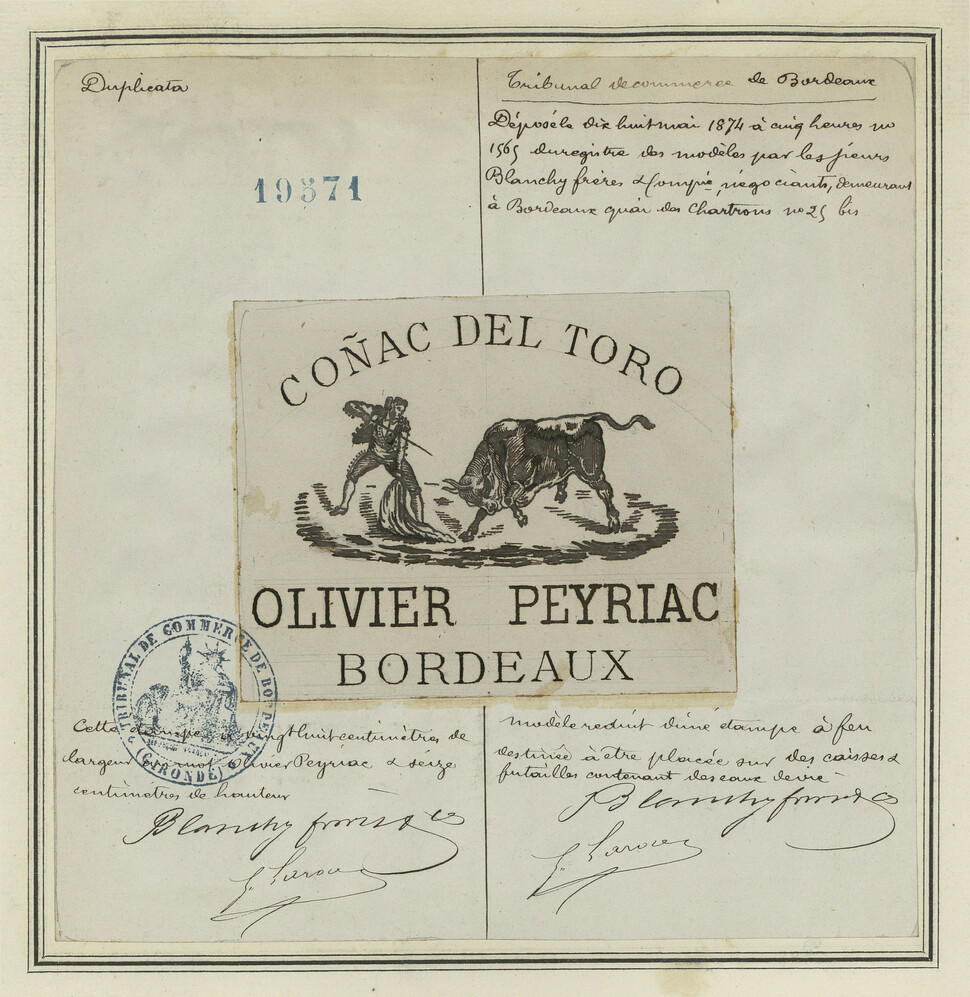 Duplicata
19571
Tribunal de commerce de Bordeaux
Déposé le dix huit mai 1874 à cinq heures no
1565 du registre des modèles par les sieurs
Blanchy frères & Compie, négociants, demeurant
à Bordeaux quai des Chartrons no 25 bis
COÑAC DEL TORO
OLIVIER PEYRIAC
BORDEAUX
TRIBUNAL DE COMMERCE DE BORDEAUX
(GIRONDE)
Cette étampe a vingt huit centimètres de
largeur au mot Olivier Peyriac & seize
centimètres de hauteur
Blanchy frères & Co
modèle reduit d'une étampe à feu
destinée à être placée sur des caisses &
futailles contenant des eaux de vie
Blanchy frères & Co